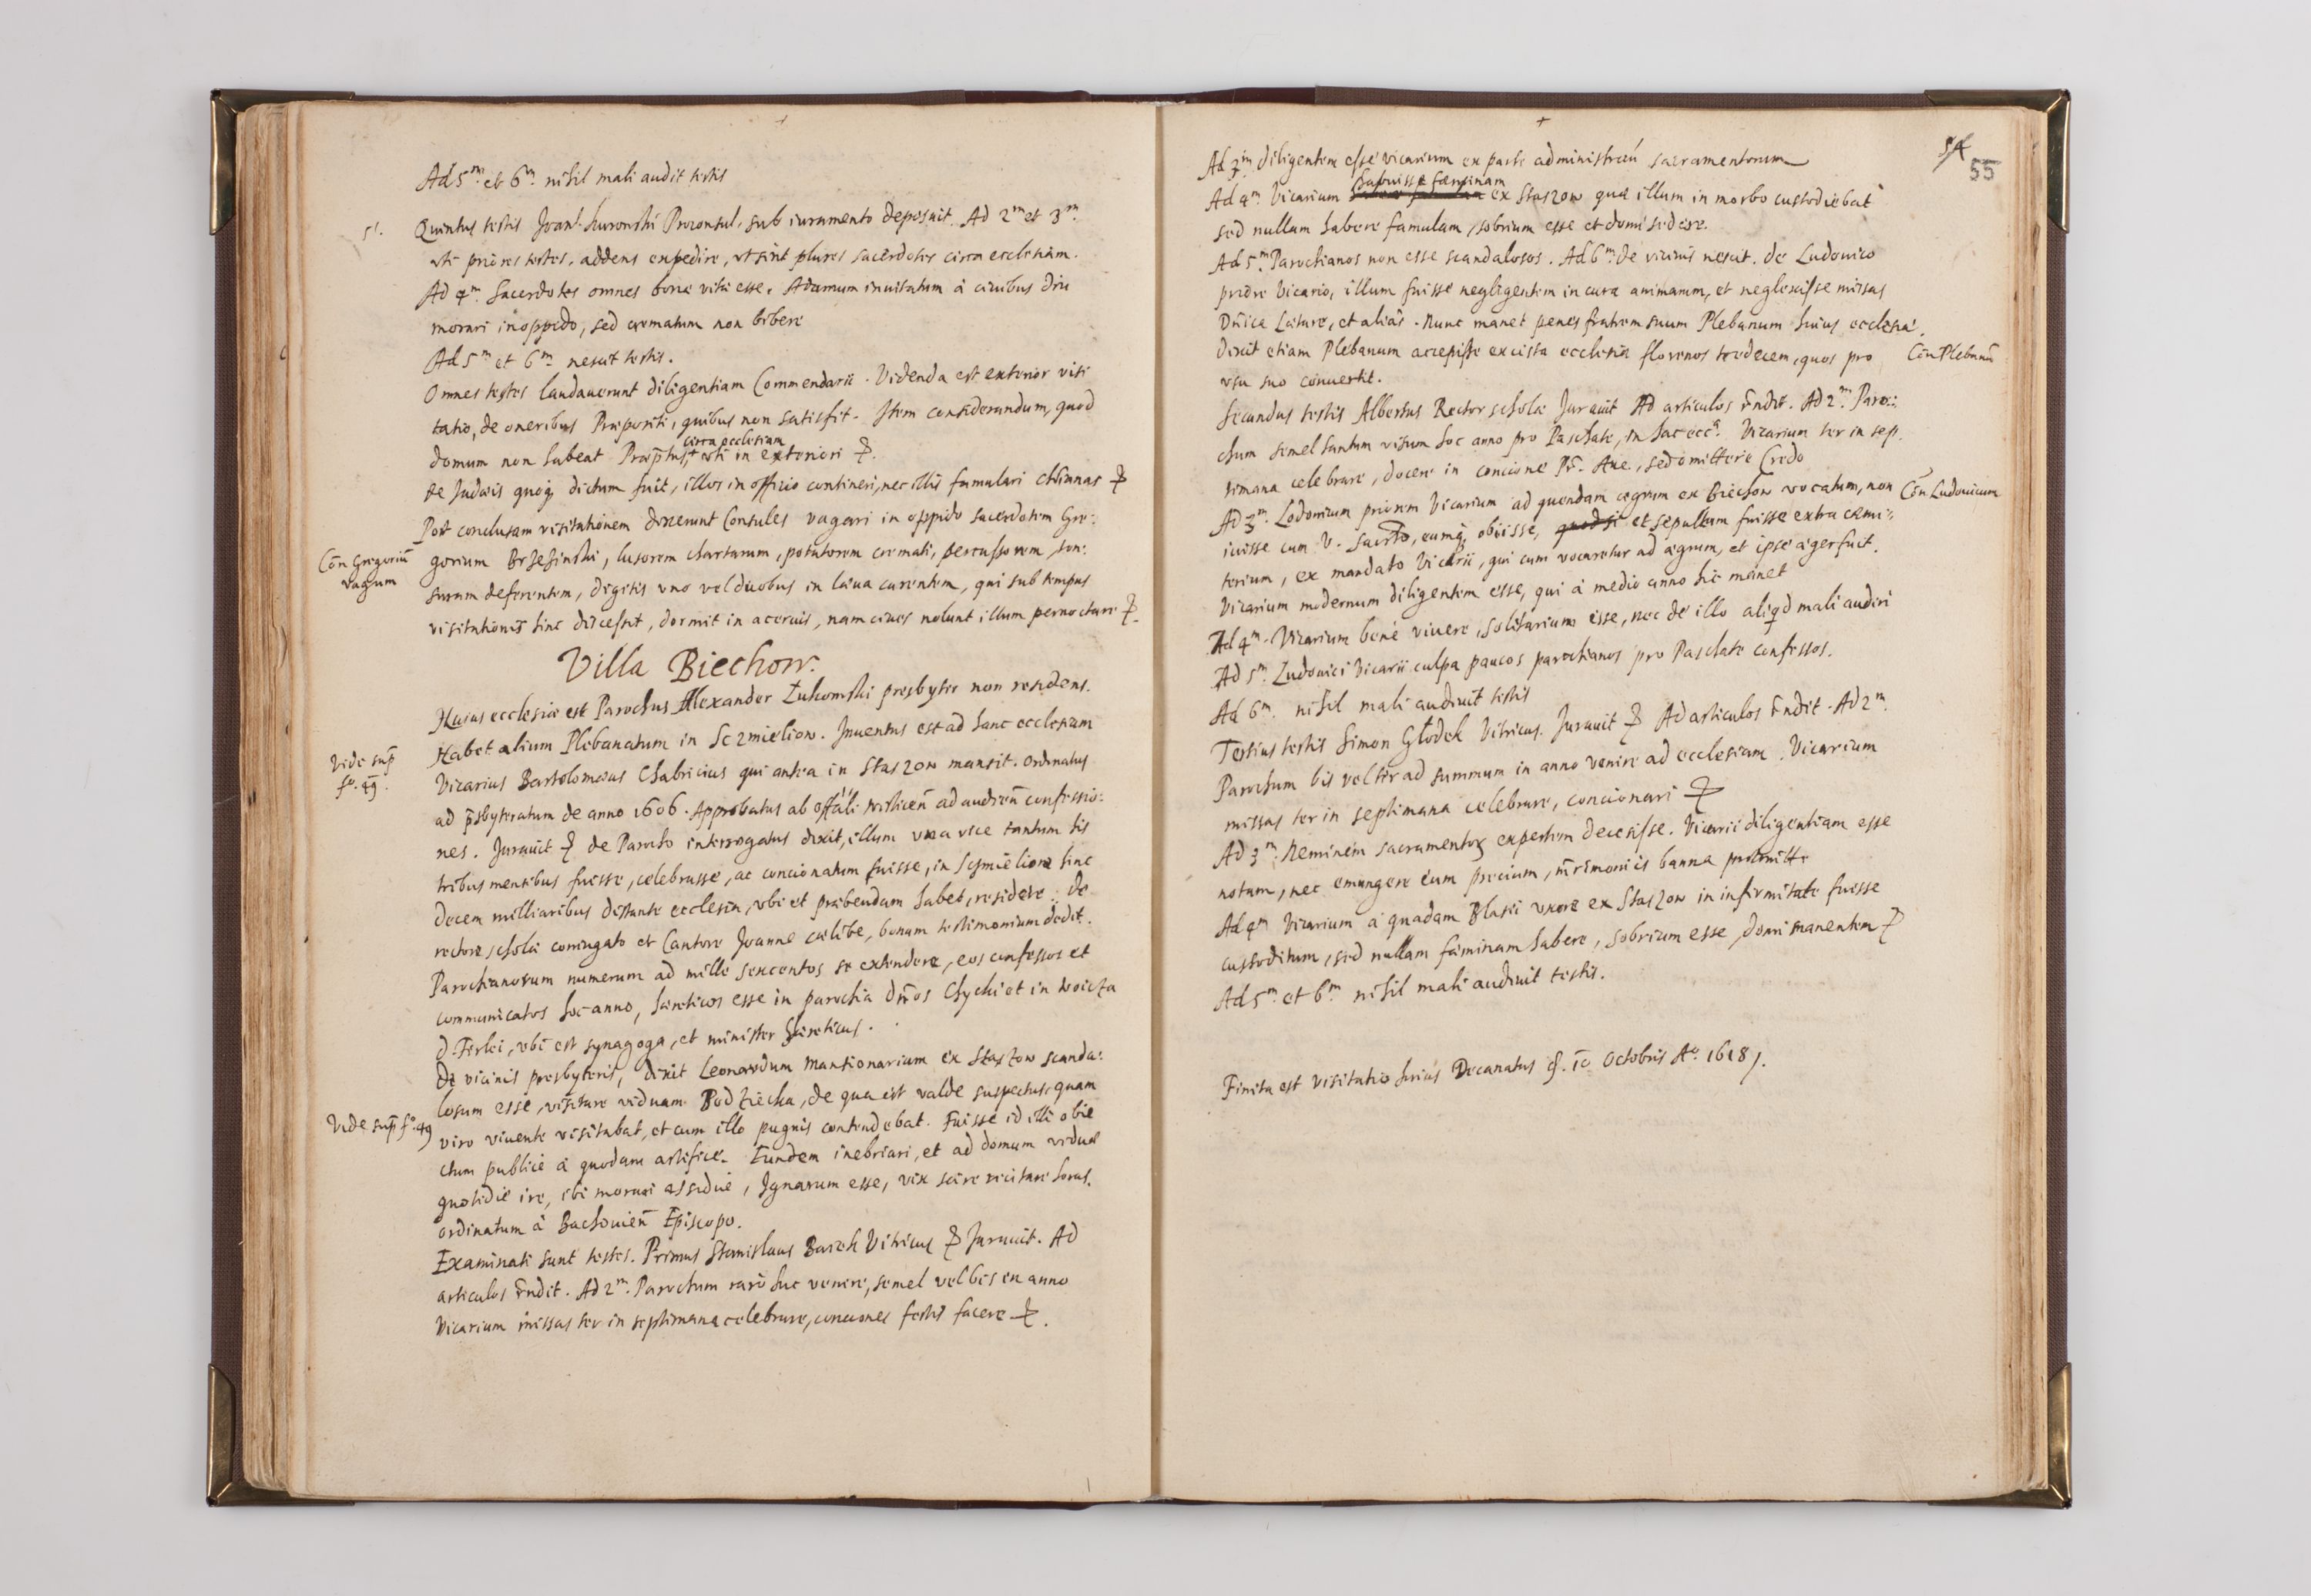 Ad 5m et 6m nihil mali audit testis
5t. Quintus testis Joan. Kuronski Proconsul, sub iuramento deposuit. Ad 2m et 3m.
uti priores testes, addens expedire, ut sint plures sacerdotes circa ecclesiam.
Ad 4m. Sacerdotes omnes bonæ vitæ esse, Adamum inuitatum à ciuibus diu
morari in oppido, sed crematum non bibere
Ad 5m et 6m nescit testis.
Omnes testes laudauerunt diligentiam Commendarii. Videnda est exterior visi
tatio, de oneribus Præpositi, quibus non satisfit. Item considerandum, quod
circa ecclesiam
domum non habeat Præptus, uti in exteriori
De Judæis quoq dictum fuit, illos in officio contineri, nec illis famulari Chrianas
Post conclusam visitationem dixerunt Consules vagari in oppido sacerdotem Gre:
Con Gregoriū
vagum
gorium Brzezinski, lusorem chartarum, potatorem cremati, percussorem, ton:
suram deferentem, digitis uno vel duobus in læua carentem, qui sub tempus
visitationis hinc discessit, dormit in aceruis, nam ciues nolunt illum pernoctare
Villa Biechow.
Huius ecclesiæ est Parochus Alexander Łukomski presbyter non residens.
Habet alium Plebanatum in Sczmielion. Inuentus est ad hanc ecclesiam
Vide sup
fo. 49.
Vicarius Bartolomæus Chabricius qui antea in Staszow mansit. ordinatus
ad psbyteratum de anno 1606. Approbatus ab offali wislicen ad audien confessio:
nes. Jurauit de Parocho interrogatus dixit, illum una vice tantum his
tribus mensibus fuisse, celebrasse, ac concionatum fuisse, in Sczmielione hinc
decem milliaribus distante ecclesia, ubi et præbendam habet, residere. de
rectore scholæ coniugato et Cantore Joanne cælibe, bonum testimonium dedit.
Parochianorum numerum ad mille sexcentos se extendere, eos confessos et
communicatos hoc anno, hæreticos esse in parochia dnos Chycki et in Woicza
d. Ferlei, ubi est synagoga, et minister hæreticus.
De vicinis presbyteris, dixit Leonardum Mansionarium ex Staszow scanda:
losum esse, visitare viduam Bodziecka, de qua est valde suspectus, quam
Vide sup fo. 49
viro viuente visitabat, et cum illo pugnis contendebat. Fuisse id illi obie
ctum publicè à quodam artifice. Eundem inebriari, et ad domum viduæ
quotidie ire, ibi morari assidue, Ignarum esse, vix scire recitare horas.
ordinatum à Bachouien Episcopo.
Examinati sunt testes. Primus Stanislaus Barch Vitricus Jurauit. Ad
articulos rndit. Ad 2m. Parochum rarò huc venire, semel vel bis in anno
Vicarium missas ter in septimana celebrare, conciones festis facere
54
55
Ad 3m diligentem esse vicarium ex parte administraen sacramentorum
habuisse fæminam
Ad 4m Vicarium ex Staszow quæ illum in morbo custodiebat
sed nullam habere famulam, sobrium esse et domi sedere.
Ad 5m. Parochianos non esse scandalosos. Ad 6m. de vicinis nescit. de Ludouico
priore Vicario, illum fuisse negligentem in cura animarum, et neglexisse missas
Dnica Lætare, et alias. Nunc manet penes fratrem suum Plebanum huius ecclesiæ.
dixit etiam Plebanum accepisse ex cista ecclesiæ florenos tredecem, quos pro
Con Plebanū
usu suo conuertit.
Secundus testis Albertus Rector scholæ Jurauit Ad articulos rndit. Ad 2m. Paro:
chum semel tantum visum hoc anno pro Paschate, in hac ecca. Vicarium ter in sep.
timana celebrare, docere in concione Pr. Aue, sed omittere Credo
Ad 3m. Lodouicum priorem Vicarium ad quendam ægrum ex Biechow vocatum, non
Con Ludouicum
iuisse cum V. Sacrto, eumq obiisse, quod si et sepultum fuisse extra cæmi:
terium, ex mandato Vicarii, qui cum vocaretur ad ægrum, et ipse æger fuit.
Vicarium modernum diligentem esse, qui à medio anno hic manet
Ad 4m. Vicarium benè viuere, solitarium esse, nec de illo aliqd mali audiri
Ad 5m. Ludouici Vicarii culpa paucos parochianos pro Paschate confessos.
Ad 6m. nihil mali audiuit testis
Tertius testis Simon Głodek Vitricus. Jurauit Ad articulos rndit. Ad 2m.
Parochum bis vel ter ad summum in anno venire ad ecclesiam. Vicarium
missas ter in septimana celebrare, concionari
Ad 3m. Neminem sacramentor expertem decessisse. Vicarii diligentiam esse
notam, nec emungere eum precium, mrimoniis banna præmitte
Ad 4m Vicarium à quadam Blasii uxore ex Staszow in infirmitate fuisse
custoditum, sed nullam fæminam habere, sobrium esse, domi manentem
Ad 5m. et 6m nihil mali audiuit testis.
Finita est Visitatio huius Decanatus Octobris Ao. 1618.